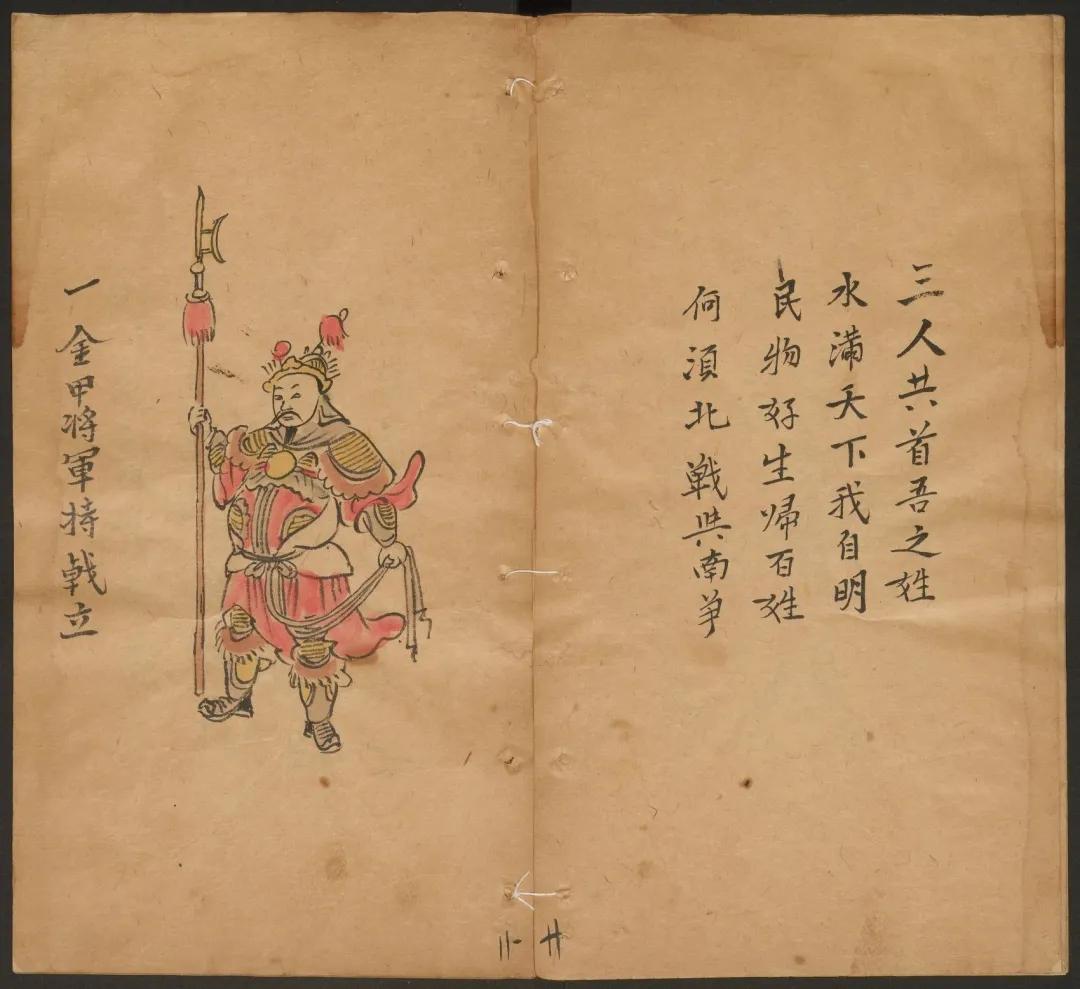 三人共首吾之姓
水满天下我自明
民物好生歸百姓
何湏北戦與南爭
一金甲将軍持戟立